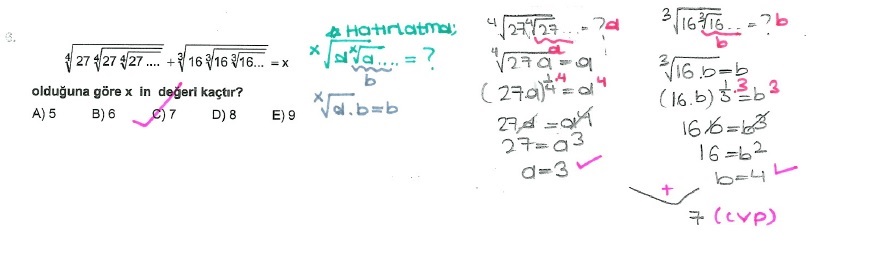 3.
∜27 ∜27 ∜27 .... + ∛16 ∛16 ∛16... = x
olduğuna göre x in değeri kaçtır?
A) 5 B) 6 C) 7 D) 8 E) 9
Hatırlatma;
ˣ√a ˣ√a.... = ?
b
ˣ√a.b = b
∜27∜27... = ? a
a
∜27a = a
(27.a)^1/4.4 = a^4
27.a = a^4
27 = a^3
a = 3
∛16∛16... = ? b
b
∛16.b = b
(16.b)^1/3.3 = b^3
16b = b^3
16 = b^2
b = 4
+
7 (cvp)